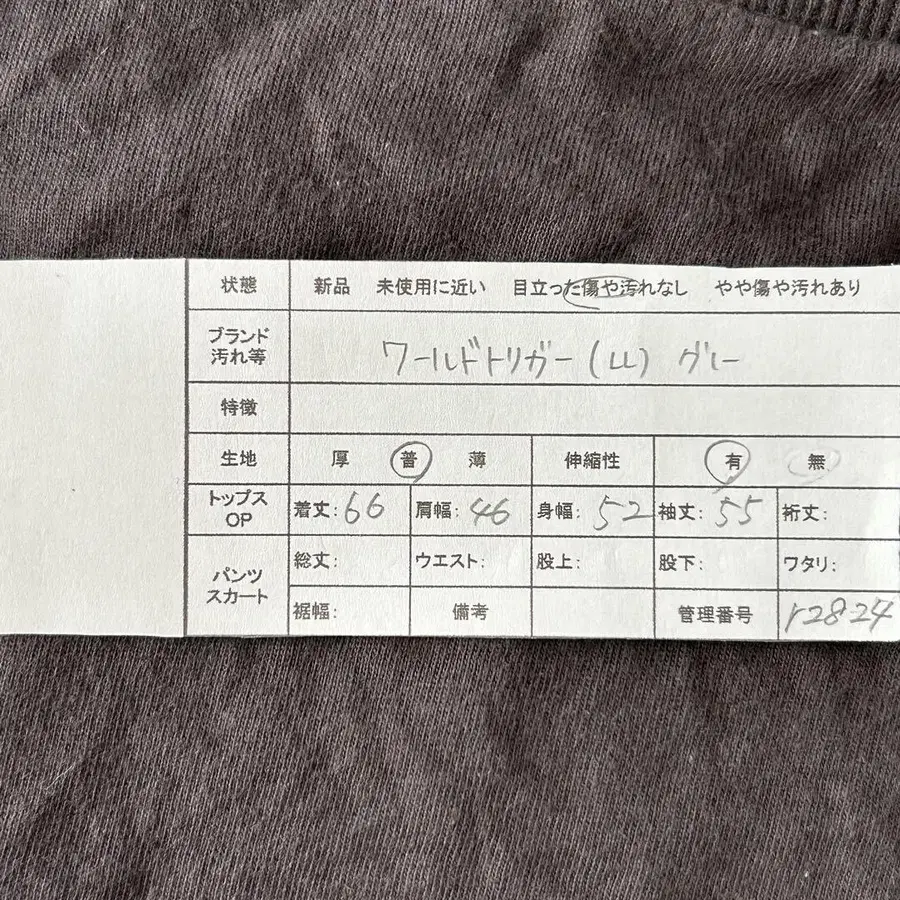 状態 新品 未使用に近い 目立った傷や汚れなし やや傷や汚れあり
ブランド
汚れ等 ワールドトリガー(LL) グレー
特徴
生地 厚 普 薄 伸縮性 有 無
トップス
OP 着丈:66 肩幅:46 身幅:52 袖丈:55 裄丈:
パンツ
スカート 総丈: ウエスト: 股上: 股下: ワタリ:
裾幅: 備考 管理番号 r2824